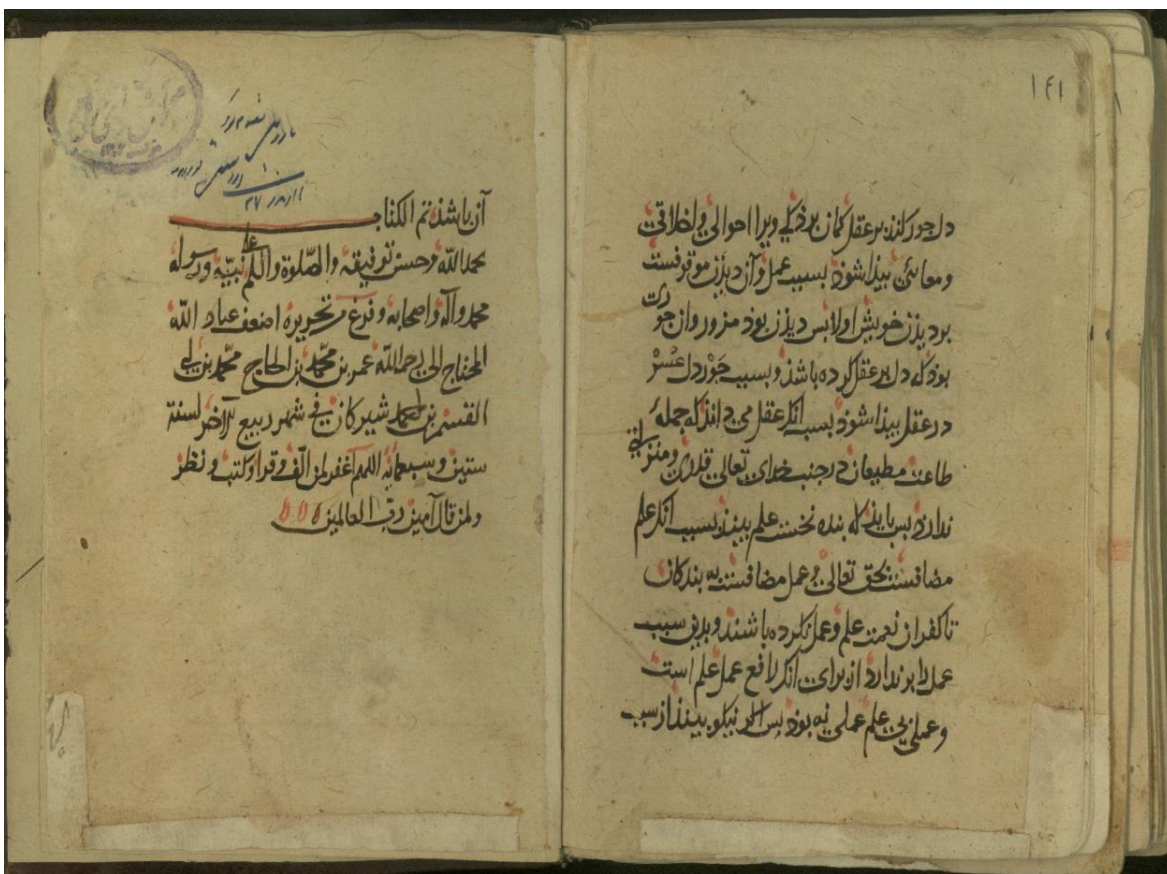 ١٤١
دل جور کنذ بر عقل کمان برذ کی ویرا احوالی واخلاقی
ومعانئ بیذا شوذ بسبب عمل وآن دیذن موقوفست
بر دیذن خویش اولا بس دیذن بوذ مزور وان جورت
بوذ که دل بر عقل کرده باشذ وبسبب جَوْر دل عُسْرْ
در عقل بیذا شوذ بسبب انک عقل می داند که جمله
طاعت مطیعان در جنب خدای تعالی قدری ومنزلتی
ندارد بس باید که بنده نخست علم بیند بسبب انک علم
مضافست بحق تعالی وعمل مضافست به بندکان
تا کفران نعمت علم وعمل نکرده باشند وبدین سبب
عمل را بر ندارد از برای انک رافع عمل علم است
وعملی بی علم عملی نه بوذ بس اکر نیکو بیند از سبب
آن باشذ تم الکتاب
بحمد الله وحسن توفیقه والصّلوة والسلم علی نبیّه ورسوله
محمد وآله واصحابه وفرغ تحریره اضعف عباد الله
المحتاج الی رحمة الله عمر بن محمّد بن الحاج محمّد بن ابی
القسم بن احمد شیرکان فی شهر ربیع الآخر لسنة
ستین وسبعمائة اللهم اغفر لمن الّف وقرا وکتب ونظر
ولمن قال آمین ربّ العالمین